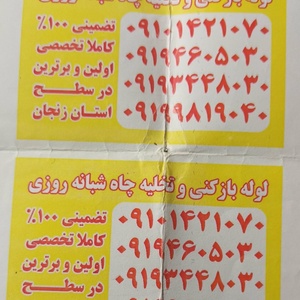 لوله بازکنی و تخلیه چاه شبانه روزی
تضمینی ۱۰۰٪
کاملا تخصصی
اولین و برترین
در سطح
استان زنجان
۰۹۱۰۱۴۲۱۰۷۰
۰۹۱۹۴۶۰۵۰۳۰
۰۹۱۹۳۴۴۸۰۳۰
۰۹۱۹۹۸۱۹۰۴۰
لوله بازکنی و تخلیه چاه شبانه روزی
تضمینی ۱۰۰٪
کاملا تخصصی
اولین و برترین
در سطح
۰۹۱۰۱۴۲۱۰۷۰
۰۹۱۹۴۶۰۵۰۳۰
۰۹۱۹۳۴۴۸۰۳۰